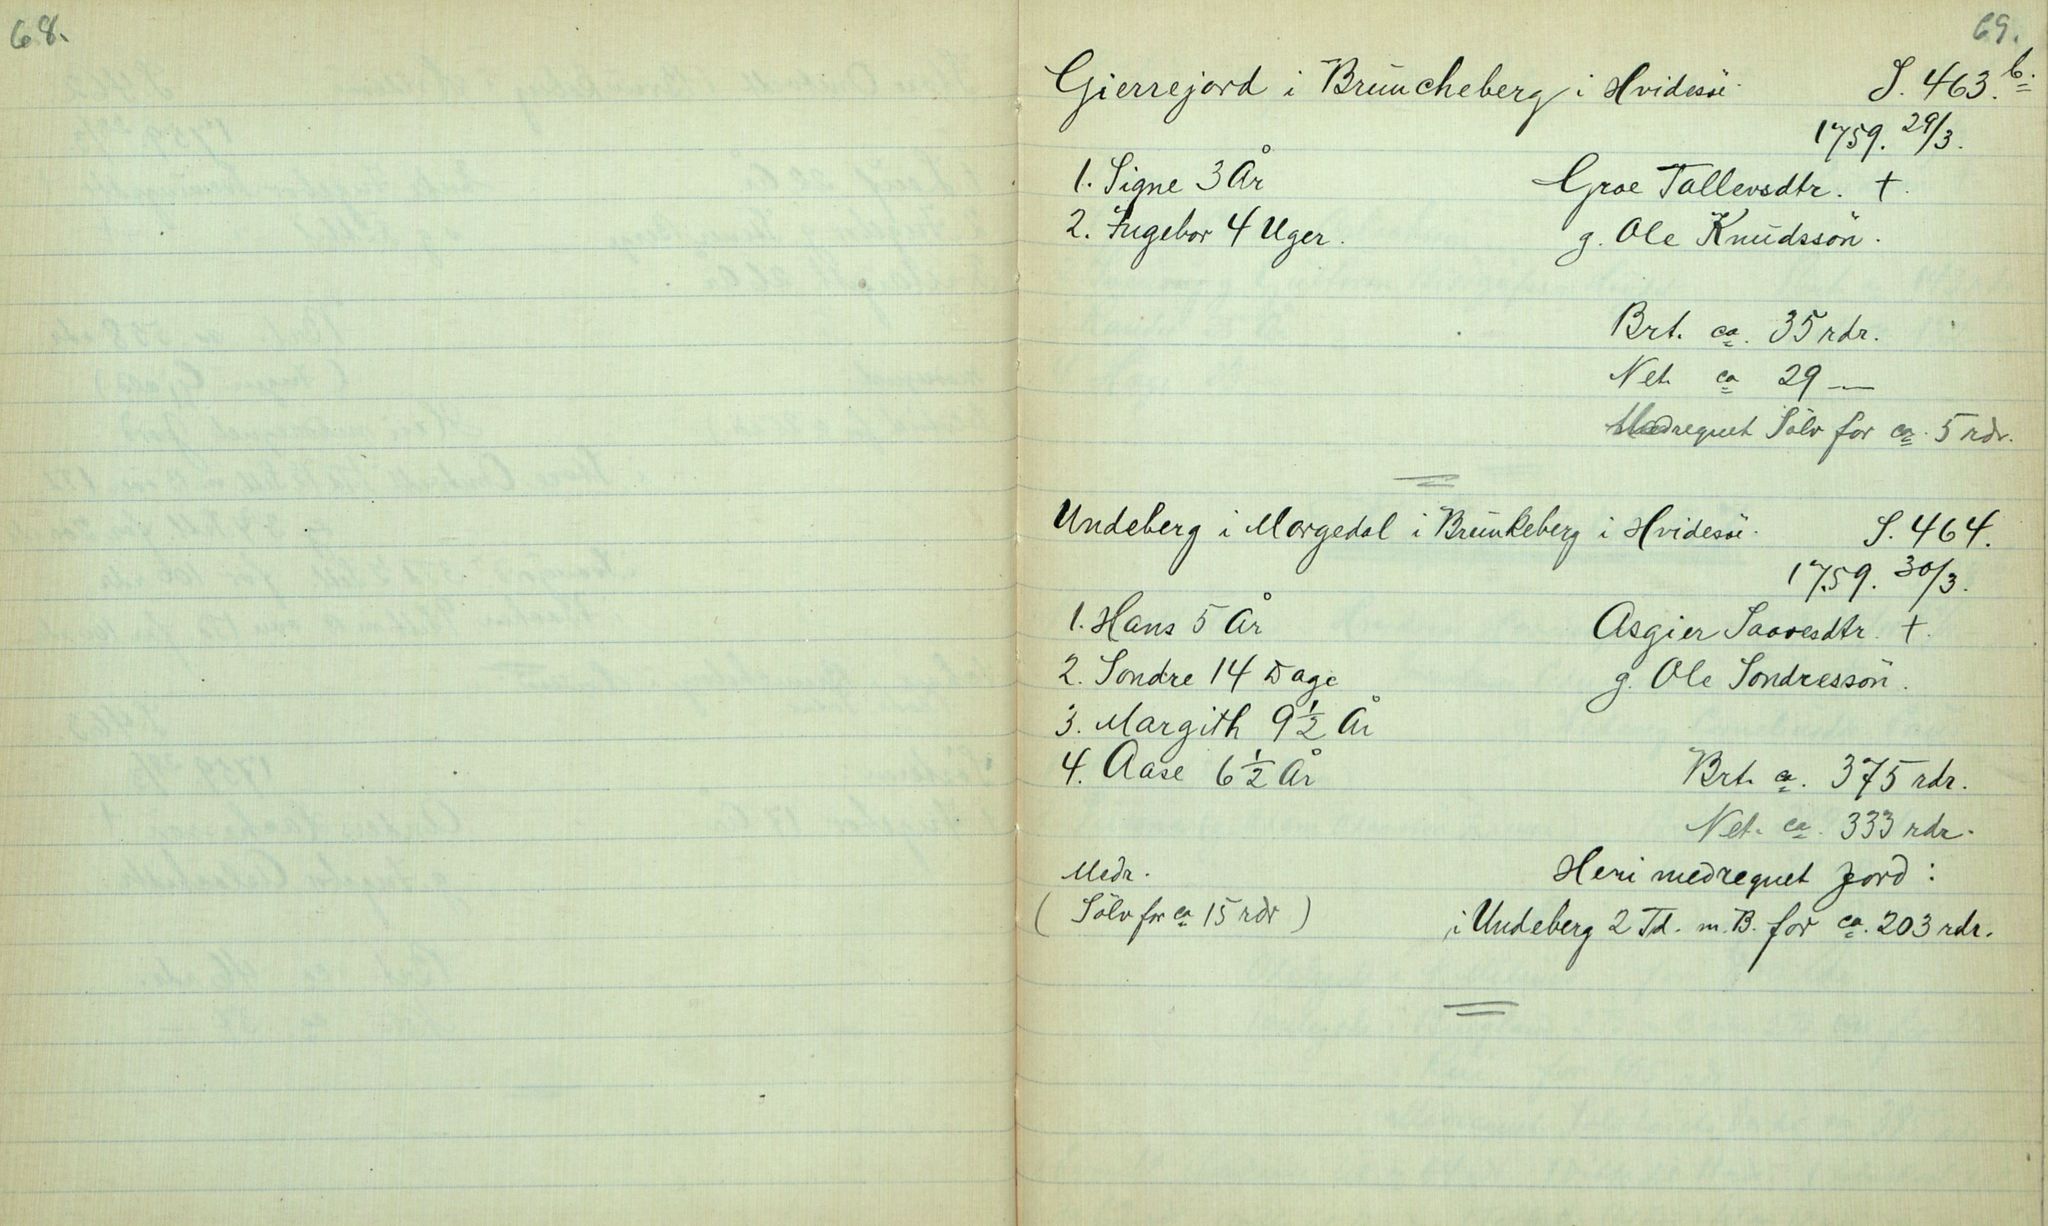 68.
69.
Gierrejord i Bruncheberg i Hvidesöe. S. 463.b.
1759. 29/3.
1. Signe 3 År Groe Tallevsdtr. †.
2. Ingebor 4 Uger. g. Ole Knudssön.
Brt. ca. 35 rdr.
Net. ca 29 —
Medregnet Sölv for ca. 5 rdr.
Undeberg i Morgedal i Brunkeberg i Hvidesöe. S. 464.
1759. 30/3.
1. Hans 5 År Asgier Saavesdtr. †.
2. Sondre 14 Dage g. Ole Sondressön.
3. Margith 9 1/2 År
4. Aase 6 1/2 År Brt. ca. 375 rdr.
Net. ca. 333 rdr.
Medr. Heri medregnet Jord:
( Sölv for ca 15 rdr ) i Undeberg 2 Td. m. B. for ca. 203 rdr.